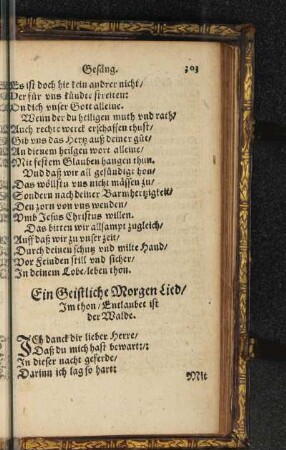 Gesäng. 303
Es ist doch hie kein andrer nicht/
Der für vns kündte streiten:
On dich vnser Gott alleine.
Wenn der du heiligen muth vnd rath/
Auch rechte werck erschaffen thust/
Gib vns das Hertz auß deiner güt/
An deinem heilgen wort alleine/
Mit festem Glauben hangen thun.
Vnd daß wir all gesündigt hon/
Das wöllstu vns nicht mässen zu/
Sondern nach deiner Barmhertzigkeit/
Den zorn von vns wenden/
Vmb Jesus Christus willen.
Das bitten wir allsampt zugleich/
Auff daß wir zu vnser zeit/
Durch deinen schutz vnd milte Hand/
Vor Feinden still vnd sicher/
In deinem Lobe leben thon.
Ein Geistliche Morgen Lied/
Im thon/ Entlaubet ist
der Walde.
ICh danck dir lieber Herre/
Daß du mich hast bewart:/:
In dieser nacht geferde/
Darinn ich lag so hart:
Mit